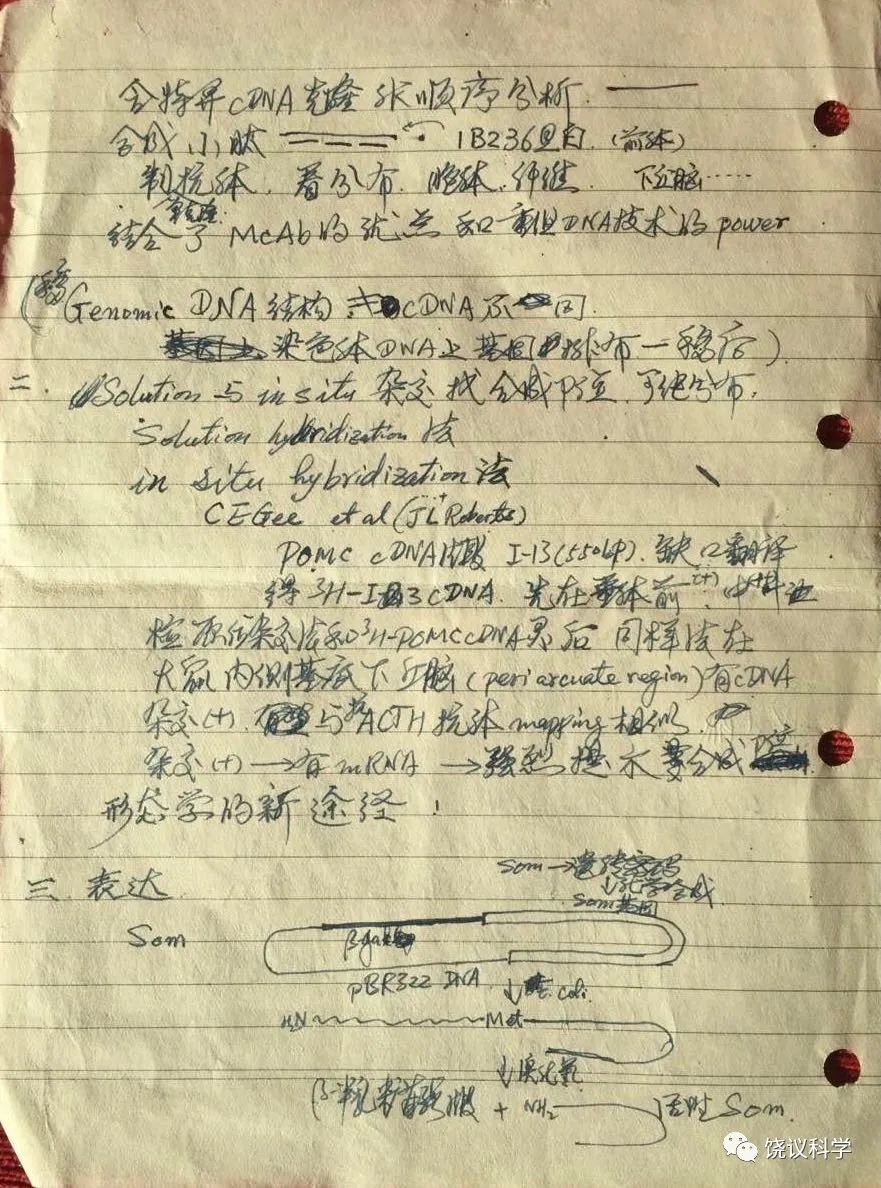 含特异cDNA克隆 顺序分析.
合成小肽 1B236蛋白.(前体)
制抗体. 看分布. 胞体.纤维. 下丘脑……
结合了McAb的优点和重组DNA技术的power
Genomic DNA结构 cDNA不同.
染色体DNA上基因排布
二. Solution与in situ杂交找合成部位.
Solution hybridization法
in situ hybridization法
CEGee et al (JL Roberts)
POMC cDNA片段 I-13(550bp). 缺口翻译
得3H-I-13 cDNA. 先在垂体前(+).中(+)
检 杂交法和3H-POMC cDNA 后 同样法在
大鼠内侧基底下丘脑(periarcuate region)有cDNA
杂交(+). 与抗ACTH抗体mapping相似.
杂交(+)→有mRNA→强烈提示 合成
形态学的新途径!
三. 表达
Som→遗传密码
↓化学合成
Som基因
Som
β-gal
pBR322 DNA
↓E. coli.
H2N Met
↓溴化氰
β-半乳糖苷酶 + NH2 活性Som.
饶议科学